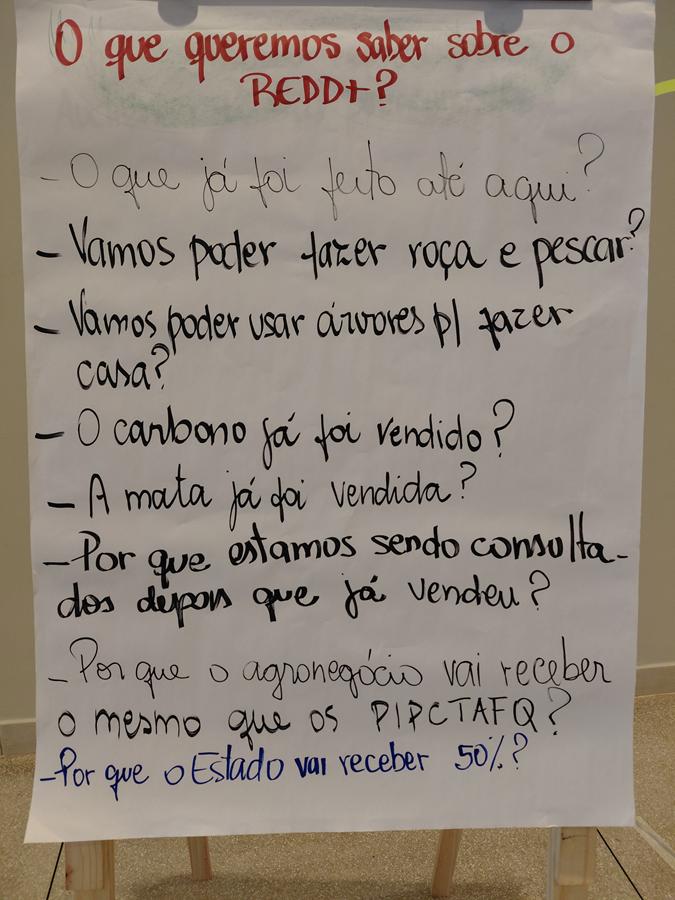 O que queremos saber sobre o
REDD+?
- O que já foi feito até aqui?
- Vamos poder fazer roça e pescar?
- Vamos poder usar árvores p/ fazer
casa?
- O carbono já foi vendido?
- A mata já foi vendida?
- Por que estamos sendo consulta-
dos depois que já vendeu?
- Por que o agronegócio vai receber
o mesmo que os PIPCTAFQ?
- Por que o Estado vai receber 50%?